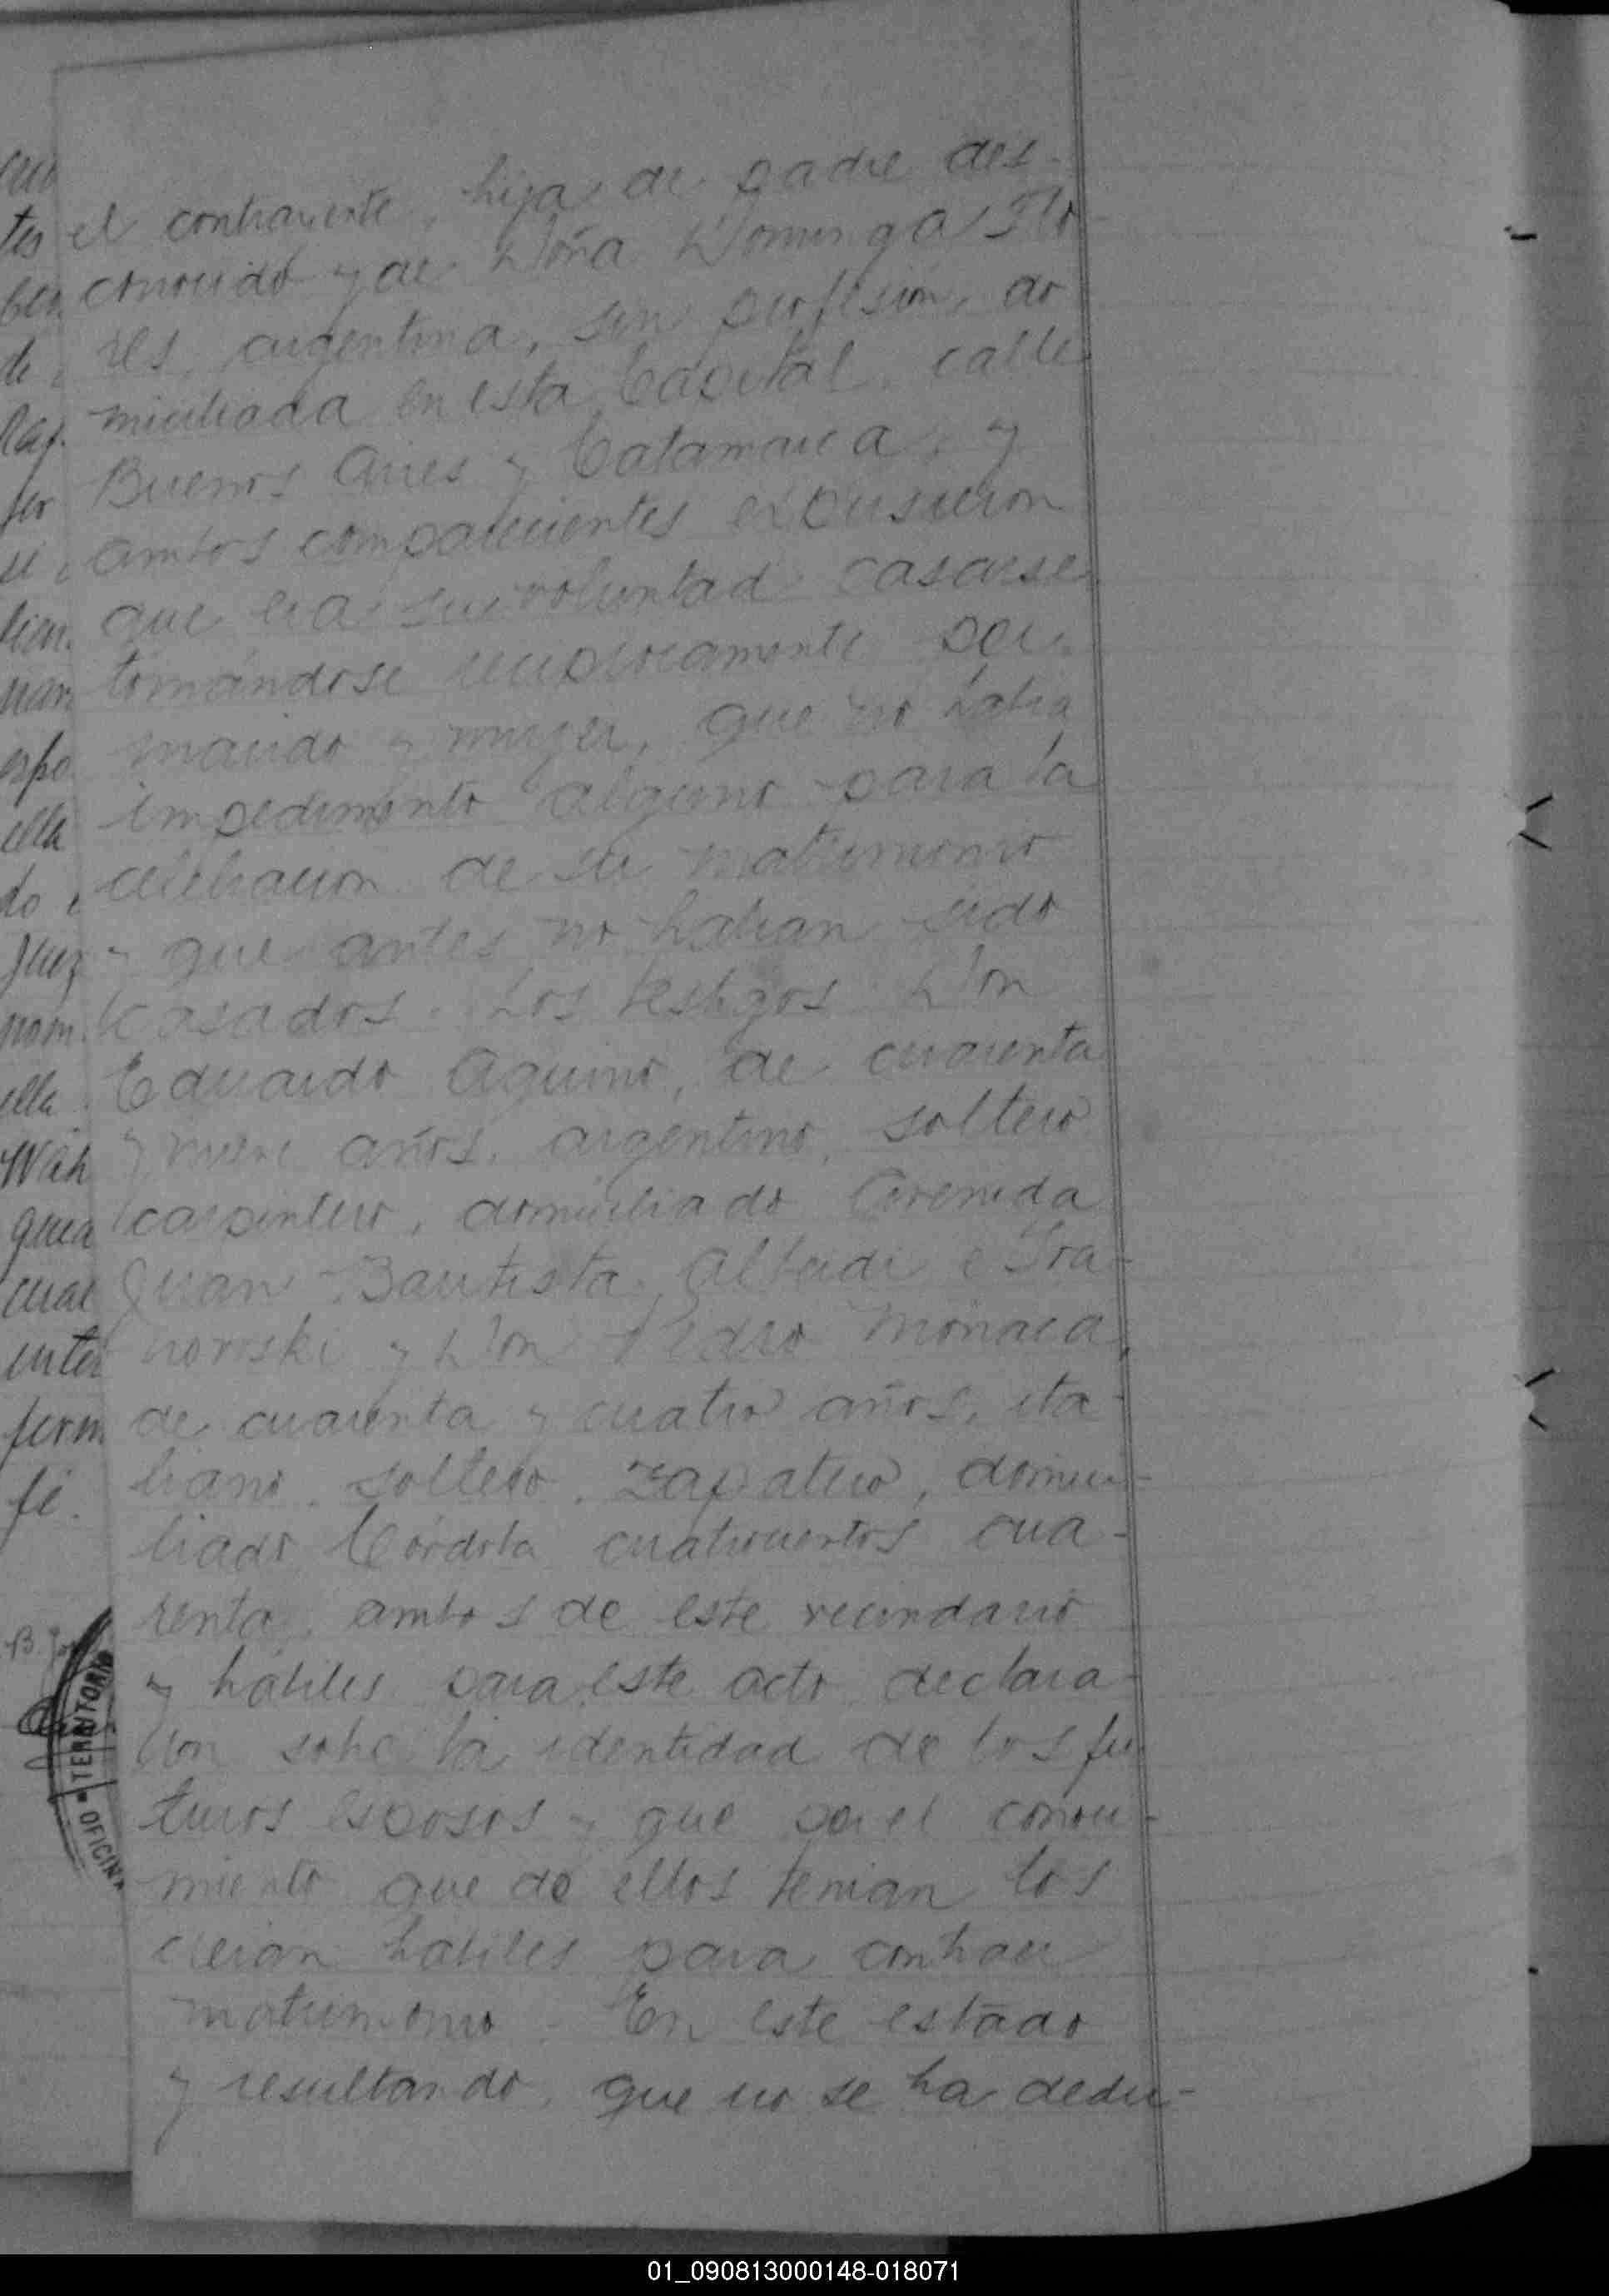 el contrayente, hija de padre des-
conocido y de Doña Dominga Flo-
res, argentina, sin profesión, do
miciliada en esta Capital, calle
Buenos Aires y Catamarca, y
ambos comparecientes expusieron
que era su voluntad casarse
tomándose recíprocamente por
marido y mujer, que no había
impedimento alguno para la
celebracion de su matrimonio
y que antes no habian sido
casados. Los testigos Don
Eduardo Aquino, de cuarenta
y nueve años, argentino, soltero
carpintero, domiciliado Avenida
Juan Bautista Alberdi e
y Don Pedro Mónaca,
de cuarenta y cuatro años, ita-
liano, soltero, zapatero, domici-
liado Córdoba cuatrocientos cua-
renta, ambos de este vecindario
y hábiles para este acto, declara-
ron sobre la identidad de los fu
turos esposos y que por el conoci-
miento que de ellos tenian los
creian habiles para contraer
matrimonio. En este estado
y resultando, que no se ha dedu-
TERRITORIO
OFICINA
01_090813000148-018071